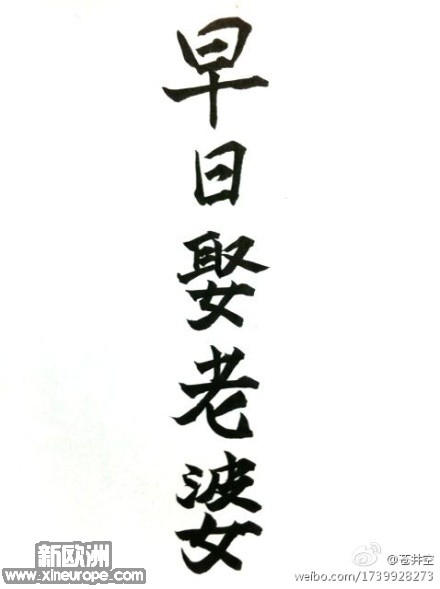 早日娶老婆
新欧洲
www.xineurope.com
@苍井空
weibo.com/1739928273